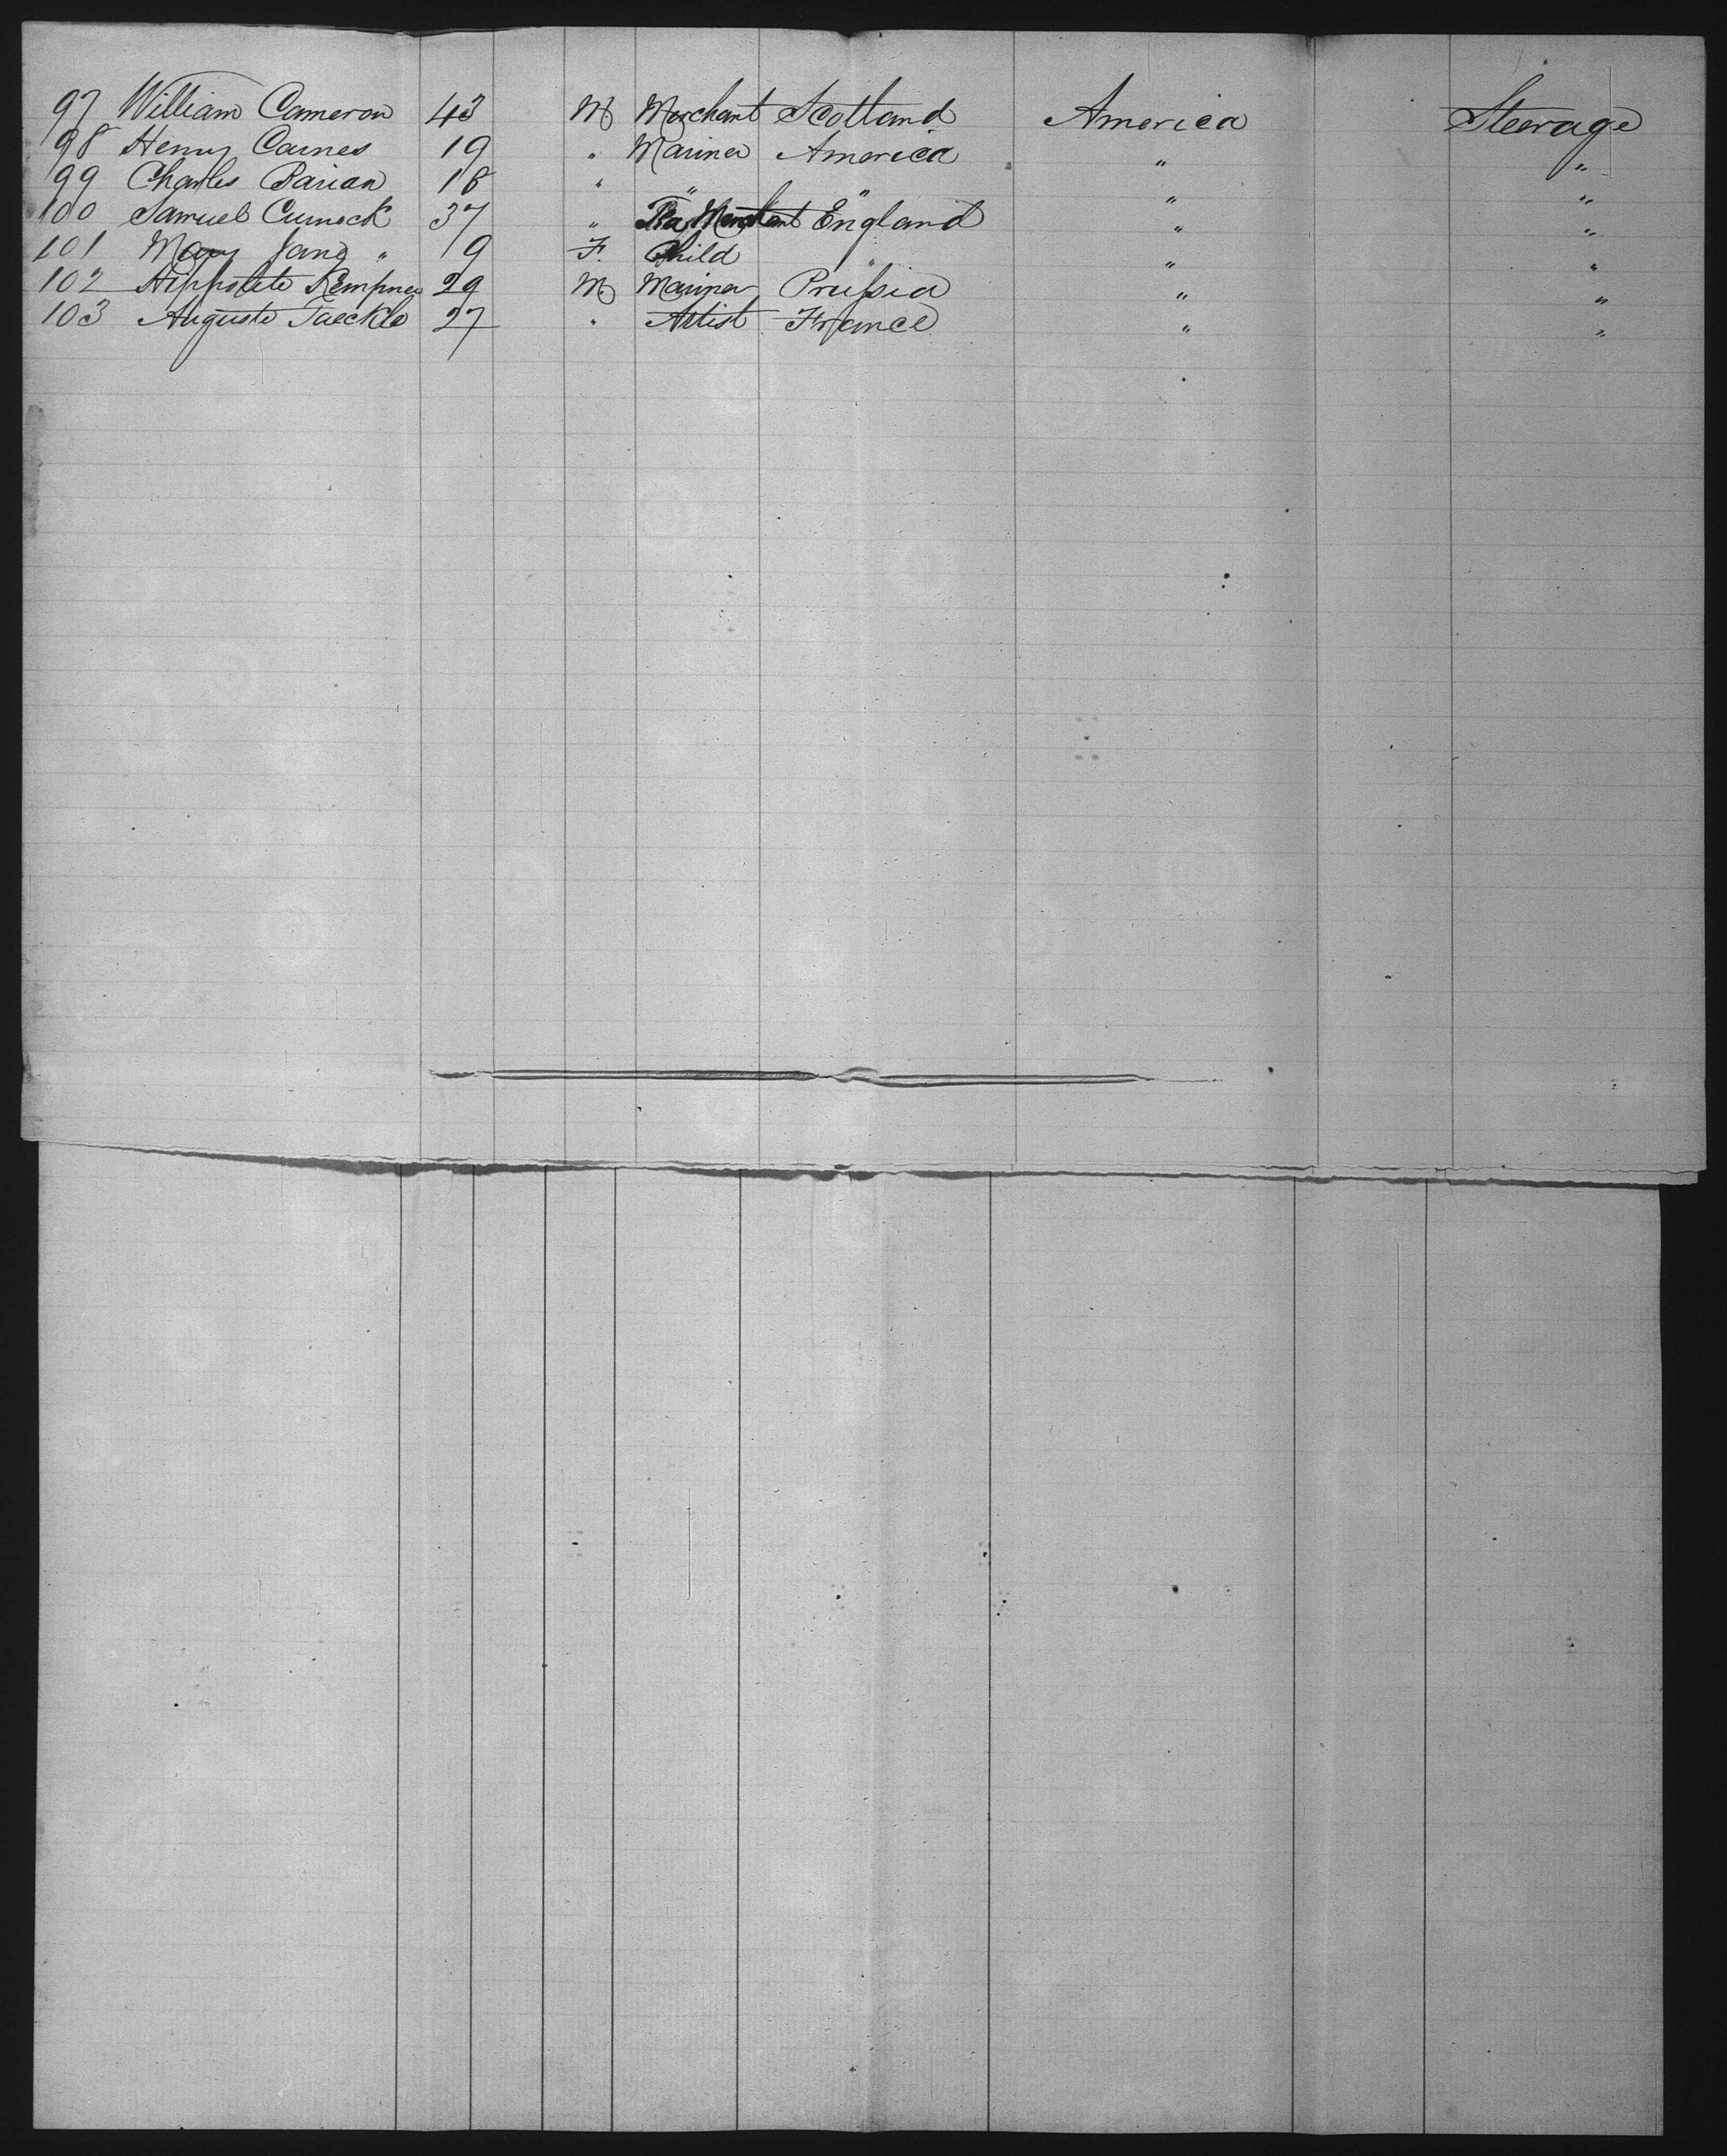 97 William Cameron 43 M Merchant Scotland America Steerage
98 Henry Carnes 19 " Mariner America " "
99 Charles Barian 18 " " " " "
100 Samuel Curnock 37 " Tea Merchant England " "
101 Mary Jane " 9 F. Child " " "
102 Hippolete Kempner 29 M Mariner Prussia " "
103 Auguste Taeckle 27 " Artist France " "